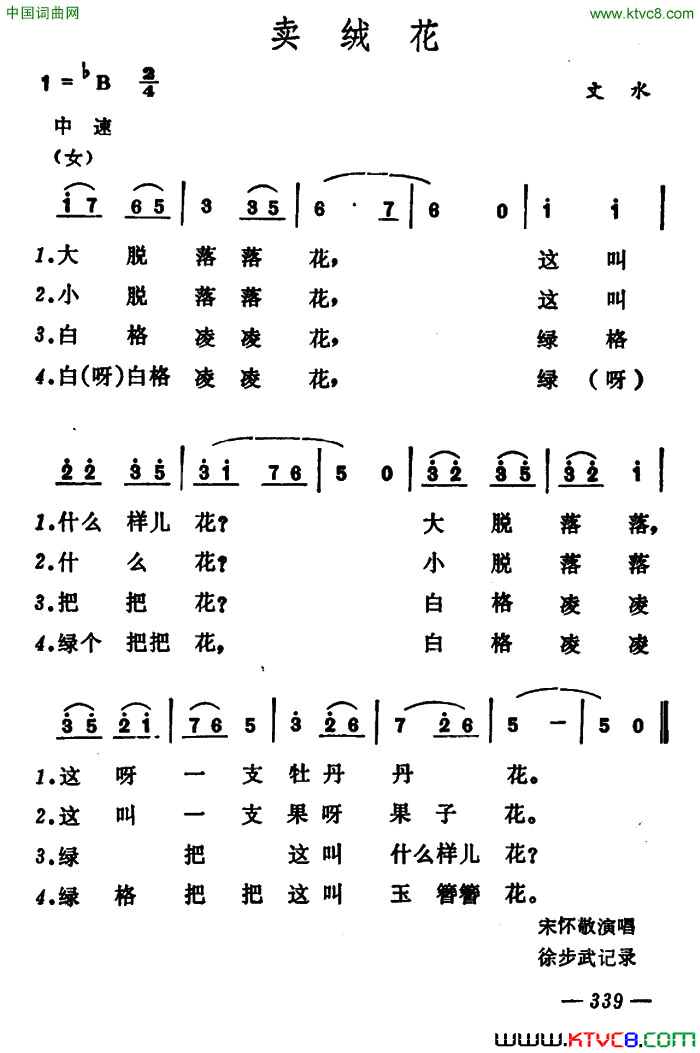 中国词曲网
www.ktvc8.com
卖绒花
1=♭B 2/4
文水
中速
(女)
i7 65 | 3 35 | 6 · 7 | 6 0 | i i |
1.大脱落落花，这叫
2.小脱落落花，这叫
3.白格凌凌花，绿格
4.白(呀)白格凌凌花，绿(呀)
2̇2̇ 3̇5̇ | 3̇i 76 | 5 0 | 3̇2̇ 3̇5̇ | 3̇2̇ i |
1.什么样儿花？大脱落落，
2.什么花？小脱落落
3.把把花？白格凌凌
4.绿个把把花，白格凌凌
3̇5̇ 2̇i | 76 5 | 3̇ 2̇6 | 7 2̇6 | 5 — | 5 0 ‖
1.这呀一支牡丹丹花。
2.这叫一支果呀果子花。
3.绿把这叫什么样儿花？
4.绿格把把这叫玉簪簪花。
宋怀敬演唱
徐步武记录
— 339 —
www.KTVC8.com